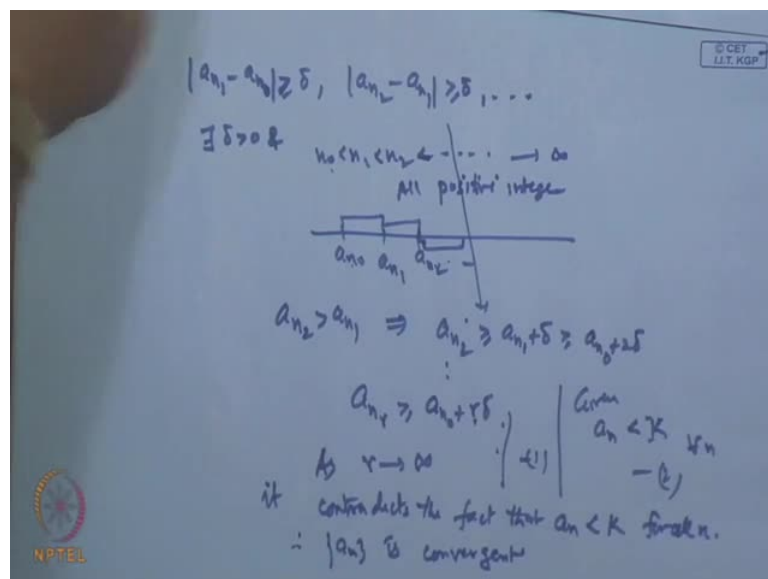 © CET
I.I.T. KGP
|a_{n_1} - a_{n_0}| ≥ δ, |a_{n_2} - a_{n_1}| ≥ δ, ....
∃ δ > 0 &
n_0 < n_1 < n_2 < ..... → ∞
All positive integer
a_{n_0} a_{n_1} a_{n_2} ..
a_{n_2} > a_{n_1} ⇒ a_{n_2} ≥ a_{n_1} + δ ≥ a_{n_0} + 2δ
:
a_{n_r} ≥ a_{n_0} + rδ
Given
a_n < K ∀ n
As r → ∞ -(1)
it contradicts the fact that a_n < K for all n.
∴ {a_n} is convergent
NPTEL